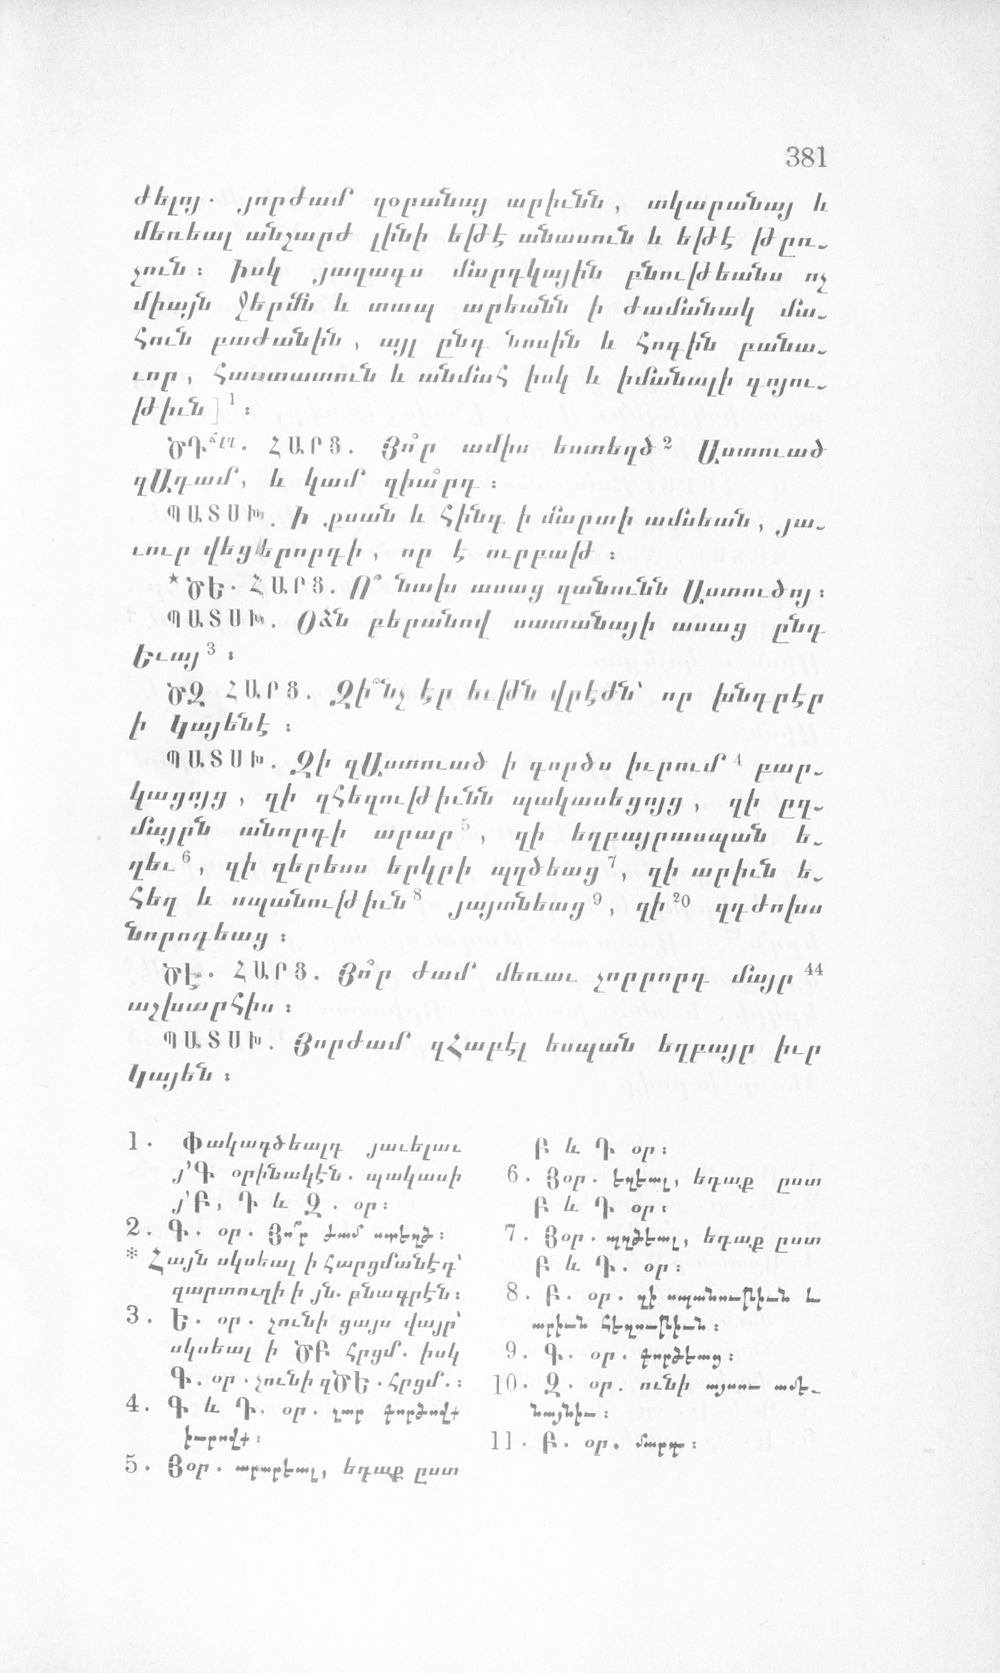 381
ժելոյ. յորժամ զօրանայ արիւնն, տկարանայ և
մեռեալ անշարժ լինի եթէ անասուն և եթէ թըռ-
չուն։ Իսկ յաղագս մարդկային բնութեանս ոչ
միայն ջերմն և տապ արեանն ի ժամանակ մա-
հուն բաժանին, այլ ընդ նոսին և հոգին բանա-
ւոր, հաստատուն և անմահ իսկ և իմանալի գոյու-
թիւն]¹։
ԾԴ. ՀԱՐՑ. Յո՞ր ամիս եստեղծ² Աստուած
զԱդամ, և կամ զիա՞րդ։
ՊԱՏՍԽ. Ի քսան և հինգ ի մարտի ամսեան, յա-
ւուր վեցերորդի, որ է ուրբաթ։
*ԾԵ. ՀԱՐՑ. Ո՞ նախ ասաց զանունն Աստուծոյ։
ՊԱՏՍԽ. Օձն բերանով սատանայի ասաց ընդ
Եւայ³։
ԾԶ ՀԱՐՑ. Զի՞նչ էր եւթն վրէժն՝ որ խնդրէր
ի Կայենէ։
ՊԱՏՍԽ. Զի զԱստուած ի գործս իւրում⁴ բար-
կացոյց, զի զհեզութիւնն պակասեցոյց, զի ըղ-
մայրն անորդի արար⁵, զի եղբայրասպան ե-
ղեւ⁶, զի զերեսս երկրի պղծեաց⁷, զի արիւն ե-
հեղ և սպանութիւն⁸ յայտնեաց⁹, զի²⁰ զդժոխս
նորոգեաց։
ԾԷ. ՀԱՐՑ. Յո՞ր ժամ մեռաւ չորրորդ մայր⁴⁴
աշխարհիս։
ՊԱՏՍԽ. Յորժամ զՀաբէլ եսպան եղբայր իւր
Կայեն։
1. Փակագծեալդ յաւելաւ
յ՚Գ օրինակէն. պակասի
յ՚Բ, Դ և Զ. օր։
2. Գ. օր. Յո՞ր ժամ ստեղծ։
* Հայն սկսեալ ի հարցմանէդ՝
զարտուղի ի յն. բնագրէն։
3. Ե. օր. չունի ցայս վայր՝
սկսեալ ի ԾԲ հրցմ. իսկ
Գ. օր. չունի զԾԵ. հրցմ.։
4. Գ և Դ. օր. չար գործովք
իւրովք։
5. Յօր. արարեալ, եդաք ըստ
Բ և Դ օր։
6. Յօր. եղեալ, եդաք ըստ
Բ և Դ օր։
7. Յօր. պղծեալ, եդաք ըստ
Բ և Դ. օր։
8. Բ. օր. զի սպանութիւն և
արիւն հեղութիւն։
9. Գ. օր. գործեաց։
10. Զ. օր. ունի այսու ամե-
նայնիւ։
11. Բ. օր. մարդ։